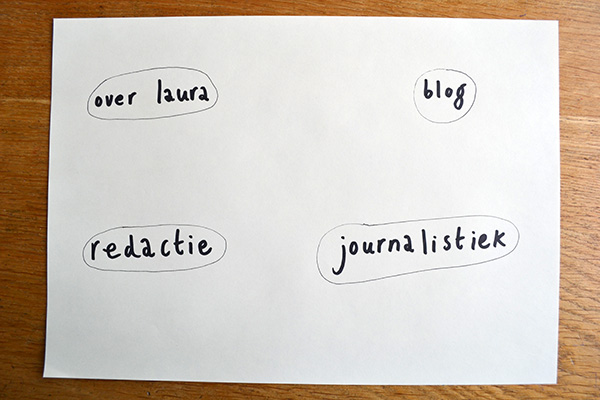 over laura
blog
redactie
journalistiek